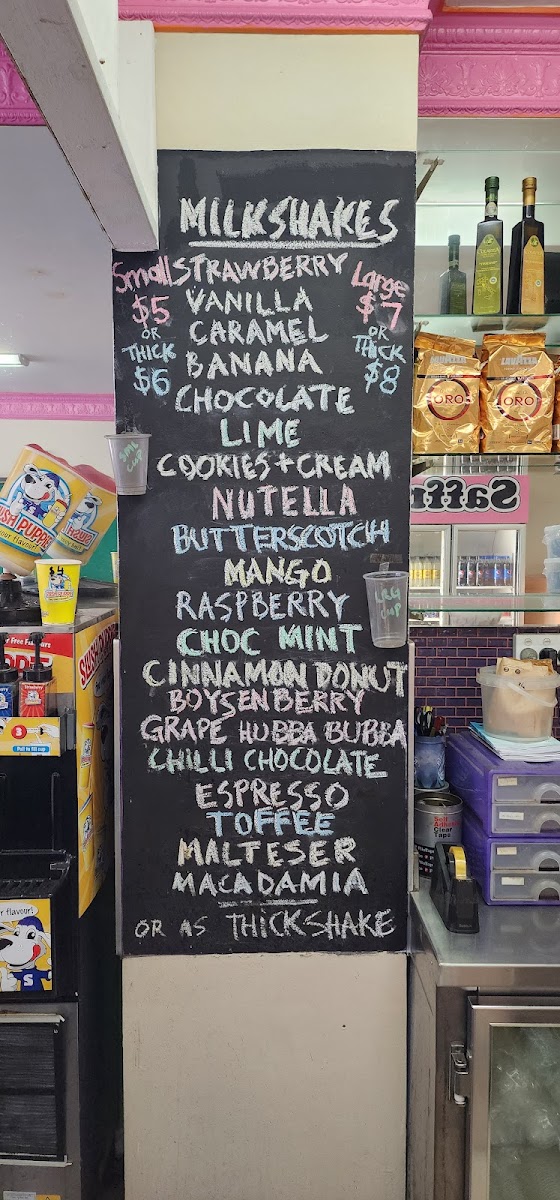 MILKSHAKES
Small
$5
OR
THICK
$6
Large
$7
OR
THICK
$8
STRAWBERRY
VANILLA
CARAMEL
BANANA
CHOCOLATE
LIME
COOKIES+CREAM
NUTELLA
BUTTERSCOTCH
MANGO
RASPBERRY
CHOC MINT
CINNAMON DONUT
BOYSENBERRY
GRAPE HUBBA BUBBA
CHILLI CHOCOLATE
ESPRESSO
TOFFEE
MALTESER
MACADAMIA
OR AS THICKSHAKE
SML
CUP
LRG
CUP
$4
LAVAZZA
ORO
LAVAZZA
ORO
Saffr
Self
Adhesive
Clear
Tape
3